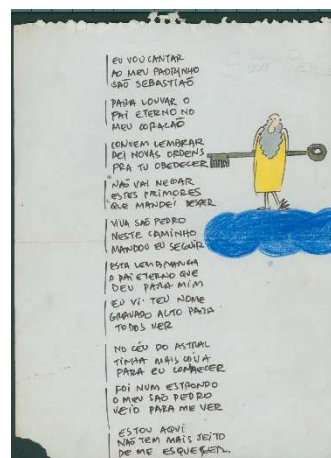 EU VOU CANTAR
AO MEU PADRINHO
SÃO SEBASTIÃO
PARA LOUVAR O
PAI ETERNO NO
MEU CORAÇÃO
CONVEM LEMBRAR
DEI NOVAS ORDENS
PRA TU OBEDECER
NÃO VAI NEGAR
ESTES PRIMORES
QUE MANDEI DESCER
VIVA SÃO PEDRO
NESTE CAMINHO
MANDOU EU SEGUIR
ESTA LEMBRANÇA
O PAI ETERNO QUE
DEU PARA MIM
EU VI TEU NOME
GRAVADO ALTO PARA
TODOS VER
NO CÉU DO ASTRAL
TINHA MAIS COISA
PARA EU CONHECER
FOI NUM ESTRONDO
O MEU SÃO PEDRO
VEIO PARA ME VER
ESTOU AQUI
NÃO TEM MAIS JEITO
DE ME ESQUECER